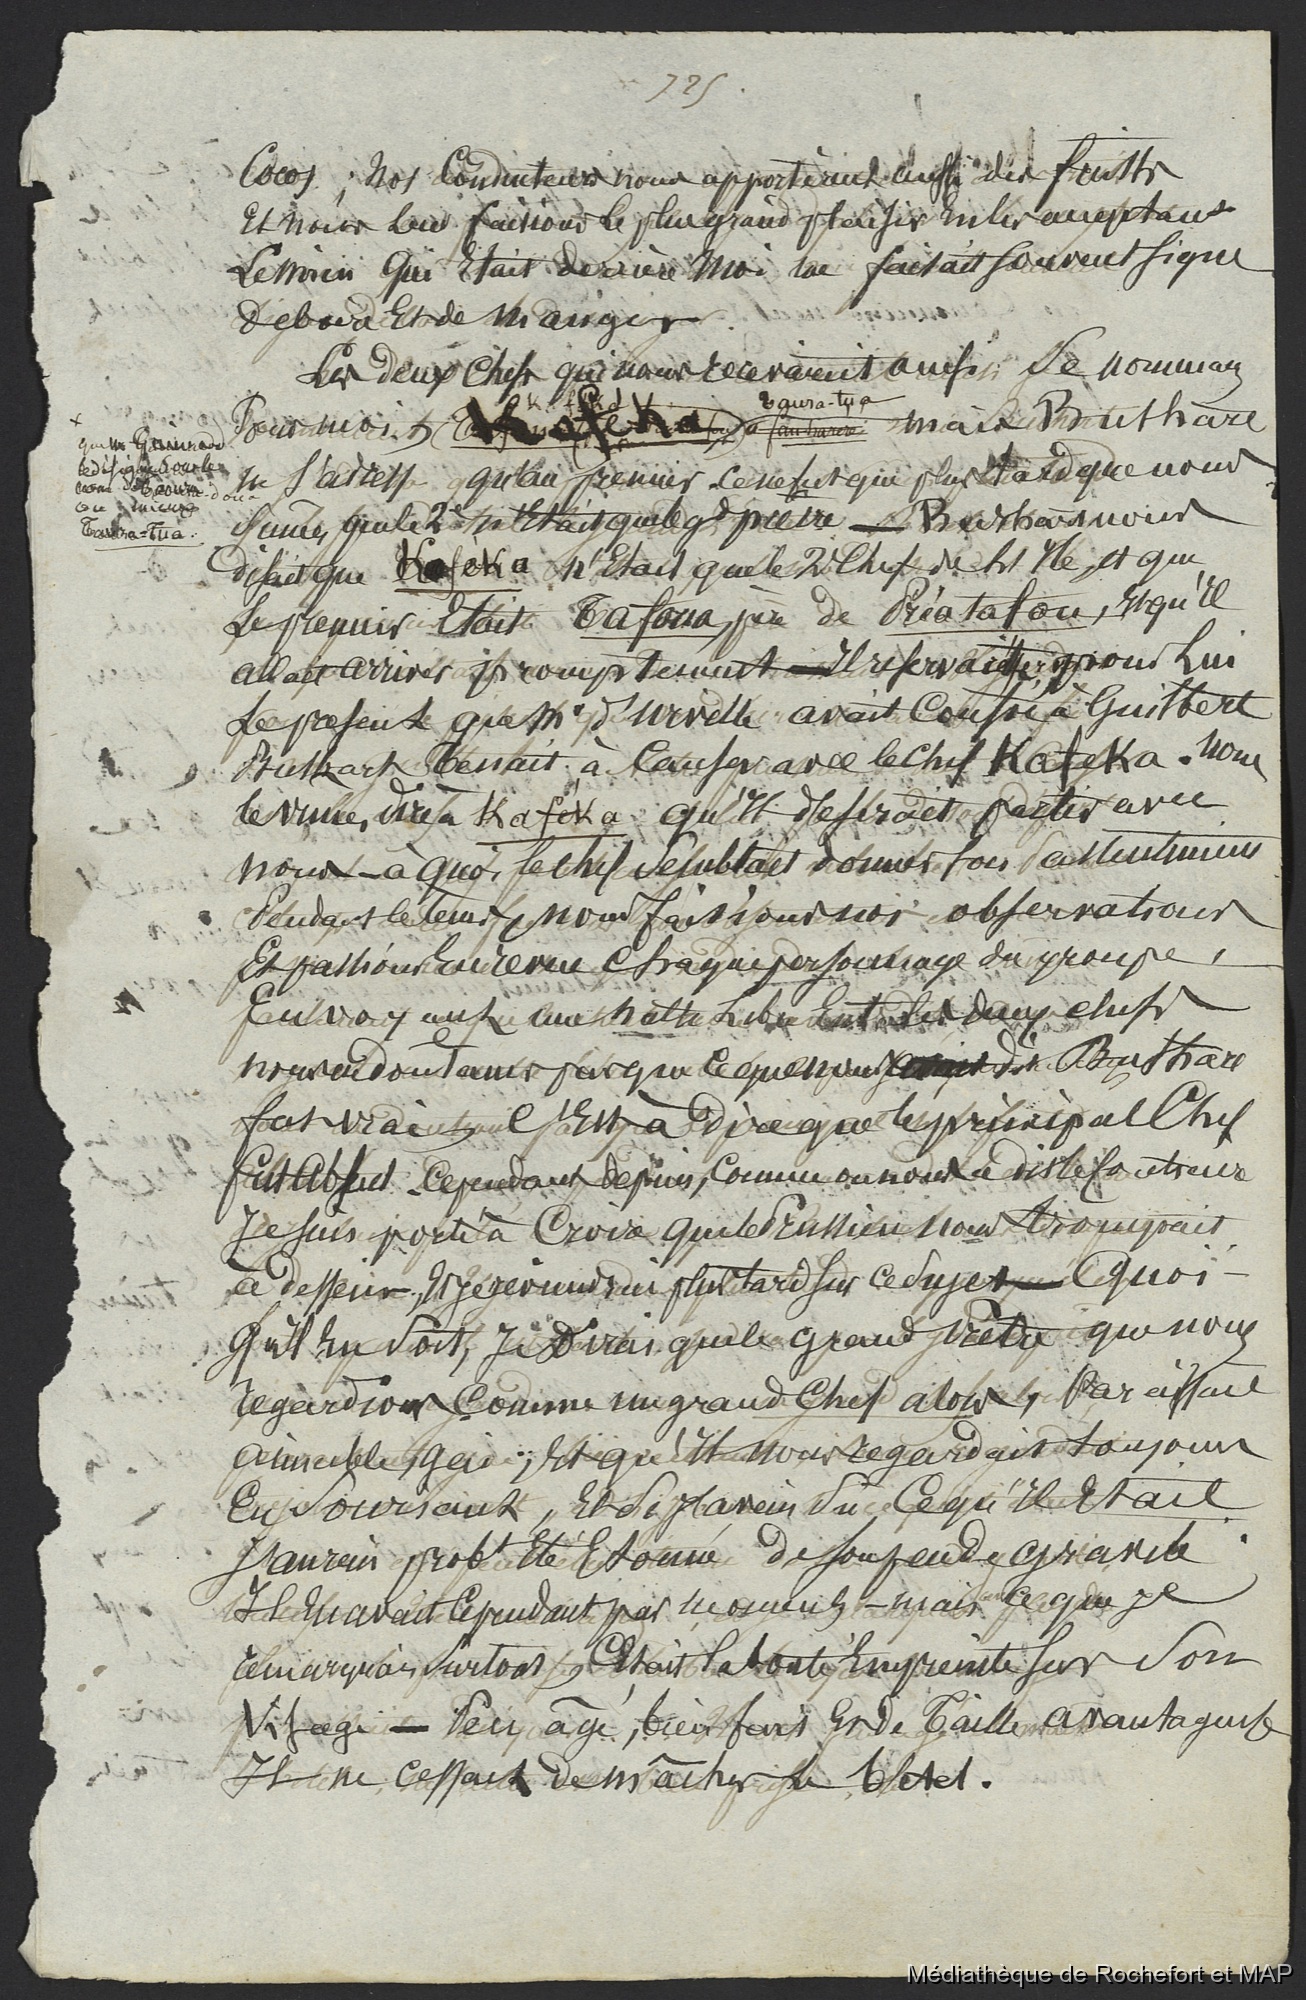 725.
Cocos ; Nos Conducteurs nous apportèrent aussi des fruits
Et nous leur faisions le plus grand plaisir En les acceptant
Le Voisin qui Etait derrière Moi me faisait souvent signe
De boire Et de Manger.
Les deux Chefs qui nous recevaient ainsi Se nommaient
Pour moi, Kafeka Toura-tua mais Buthare
+ que M. Gaimard
le désigne sous le
nom de Toura-doua
ou mieux
Toura-Tua.
ne s'adresse qu'au premier. Ce ne fut que plus tard que nous
sumes que le 2e n'Etait que le gd prêtre — Buthare nous
disait que Kafeka n'Etait que le 2e Chef de L'Ile, et que
Le premier Etait Tafoua, père de Préatafou, Et qu'il
allait arriver promptement — Il reservait pour Lui
Le present que Mr d'urville avait Confié à Guilbert
Buthart Tenait à Causer avec le Chef Kafeka. Nous
le vimes dire à Kafeka qu'il desirait partir avec
nous — à quoi le chef semblait donner son
Pendant le tems, nous faisions nos observations
Et passions En revue Chaque personnage du groupe,
En voyant une natte Libre Entre les deux chefs
nous ne doutames pas que ce que nous dit Buthare
fut vrai C'Est à dire que le principal Chef
fut Absent. Cependant depuis, Comme on nous a dit le Contraire
Je suis porté à Croire que le Prussien nous trompait
à dessein, Et je reviendrai plus tard sur ce Sujet — Quoi-
Qu'il En Soit, Je Dirai que le grand Prêtre que nous
regardions Comme un grand Chef alors, Paraissait
aimable, gai, ; Et qu'il nous regardait toujours
En Souriant, Et Si J'avais Su Ce qu'il Etait
J'aurais probt Eté Etonné de son peu de gravité.
Il En avait Cependant par momens — mais ce que je
remarquai Surtout, C'Etait la bonté Empreinte sur Son
Visage — Peu âgé, bien fait Et de Taille avantageuse
Il ne cessait de mâcher le bétel.
Médiathèque de Rochefort et MAP